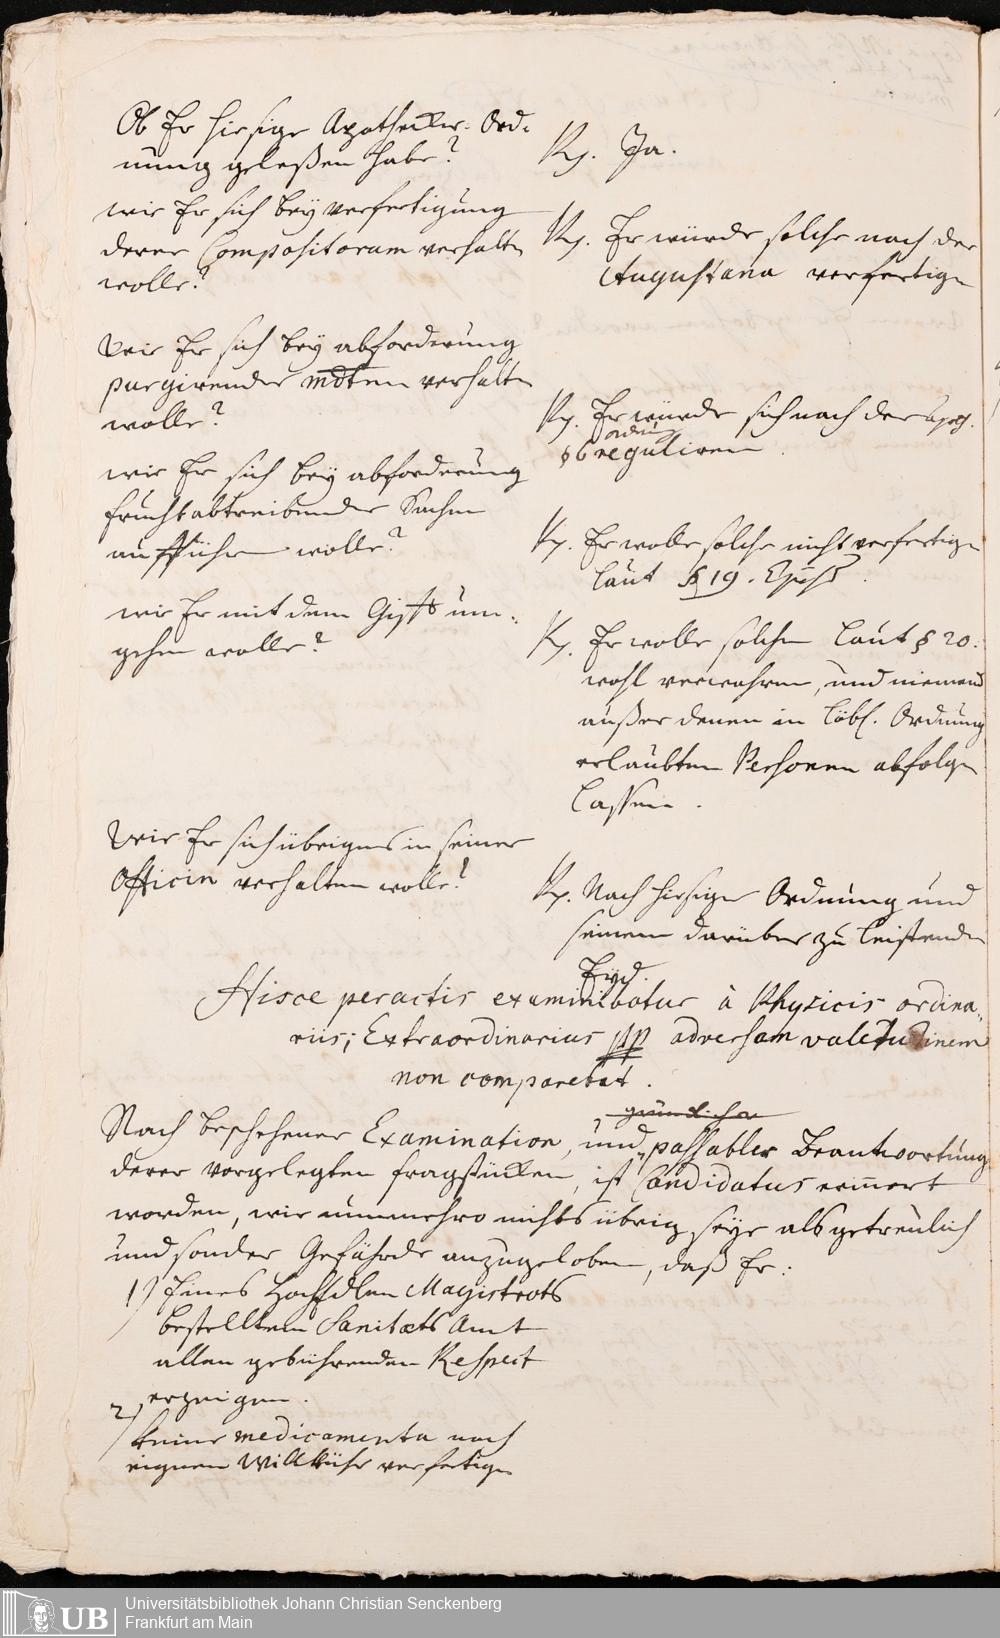 Ob Er hiesige Apothecker-Ord-
nung geleßen habe?
Rp. Ja.
wie Er sich bey verfertigung
derer Compositorum verhalten
wolle?
Rp. Er würde solche nach der
Augustana verfertigen
Wie Er sich bey abforderung
purgirender mdten verhalten
wolle?
Rp. Er würde sich nach der
ordnung
§ 6 reguliren.
wie Er sich bey abforderung
fruchtabtreibender Sachen
aufführen wolle?
Rp. Er wolle solche nicht verfertigen
laut § 19.
wie Er mit dem Gifft um-
gehen wolle?
Rp. Er wolle solchen laut § 20.
wohl verwahren, und niemand
außer denen in löbl. Ordnung
erlaubten Personen abfolgen
lassen.
Wie Er sich übrigens in seiner
Officin verhalten wolle?
Rp. Nach hiesiger Ordnung und
seinem darüber zu leistenden
Eyd.
Hisce peractis examinabatur à Physicis ordina-
riis; Extraordinarius ptp adversam valetudinem
non comparebat.
gründlicher
Nach beschehener Examination, und passabler Beantwortung
derer vorgelegten fragstücken, ist Candidatus erinnert
worden, wie nunmehro nichts übrig seye als getreulich
und sonder Gefährde anzugeloben, daß Er:
1) Eines HochEdlen Magistrats
bestelltem Sanitæts Amt
allen gebührenden Respect
erzeigen.
2) keine medicamenta nach
eignem Willkühr verfertigen
UB Universitätsbibliothek Johann Christian Senckenberg
Frankfurt am Main